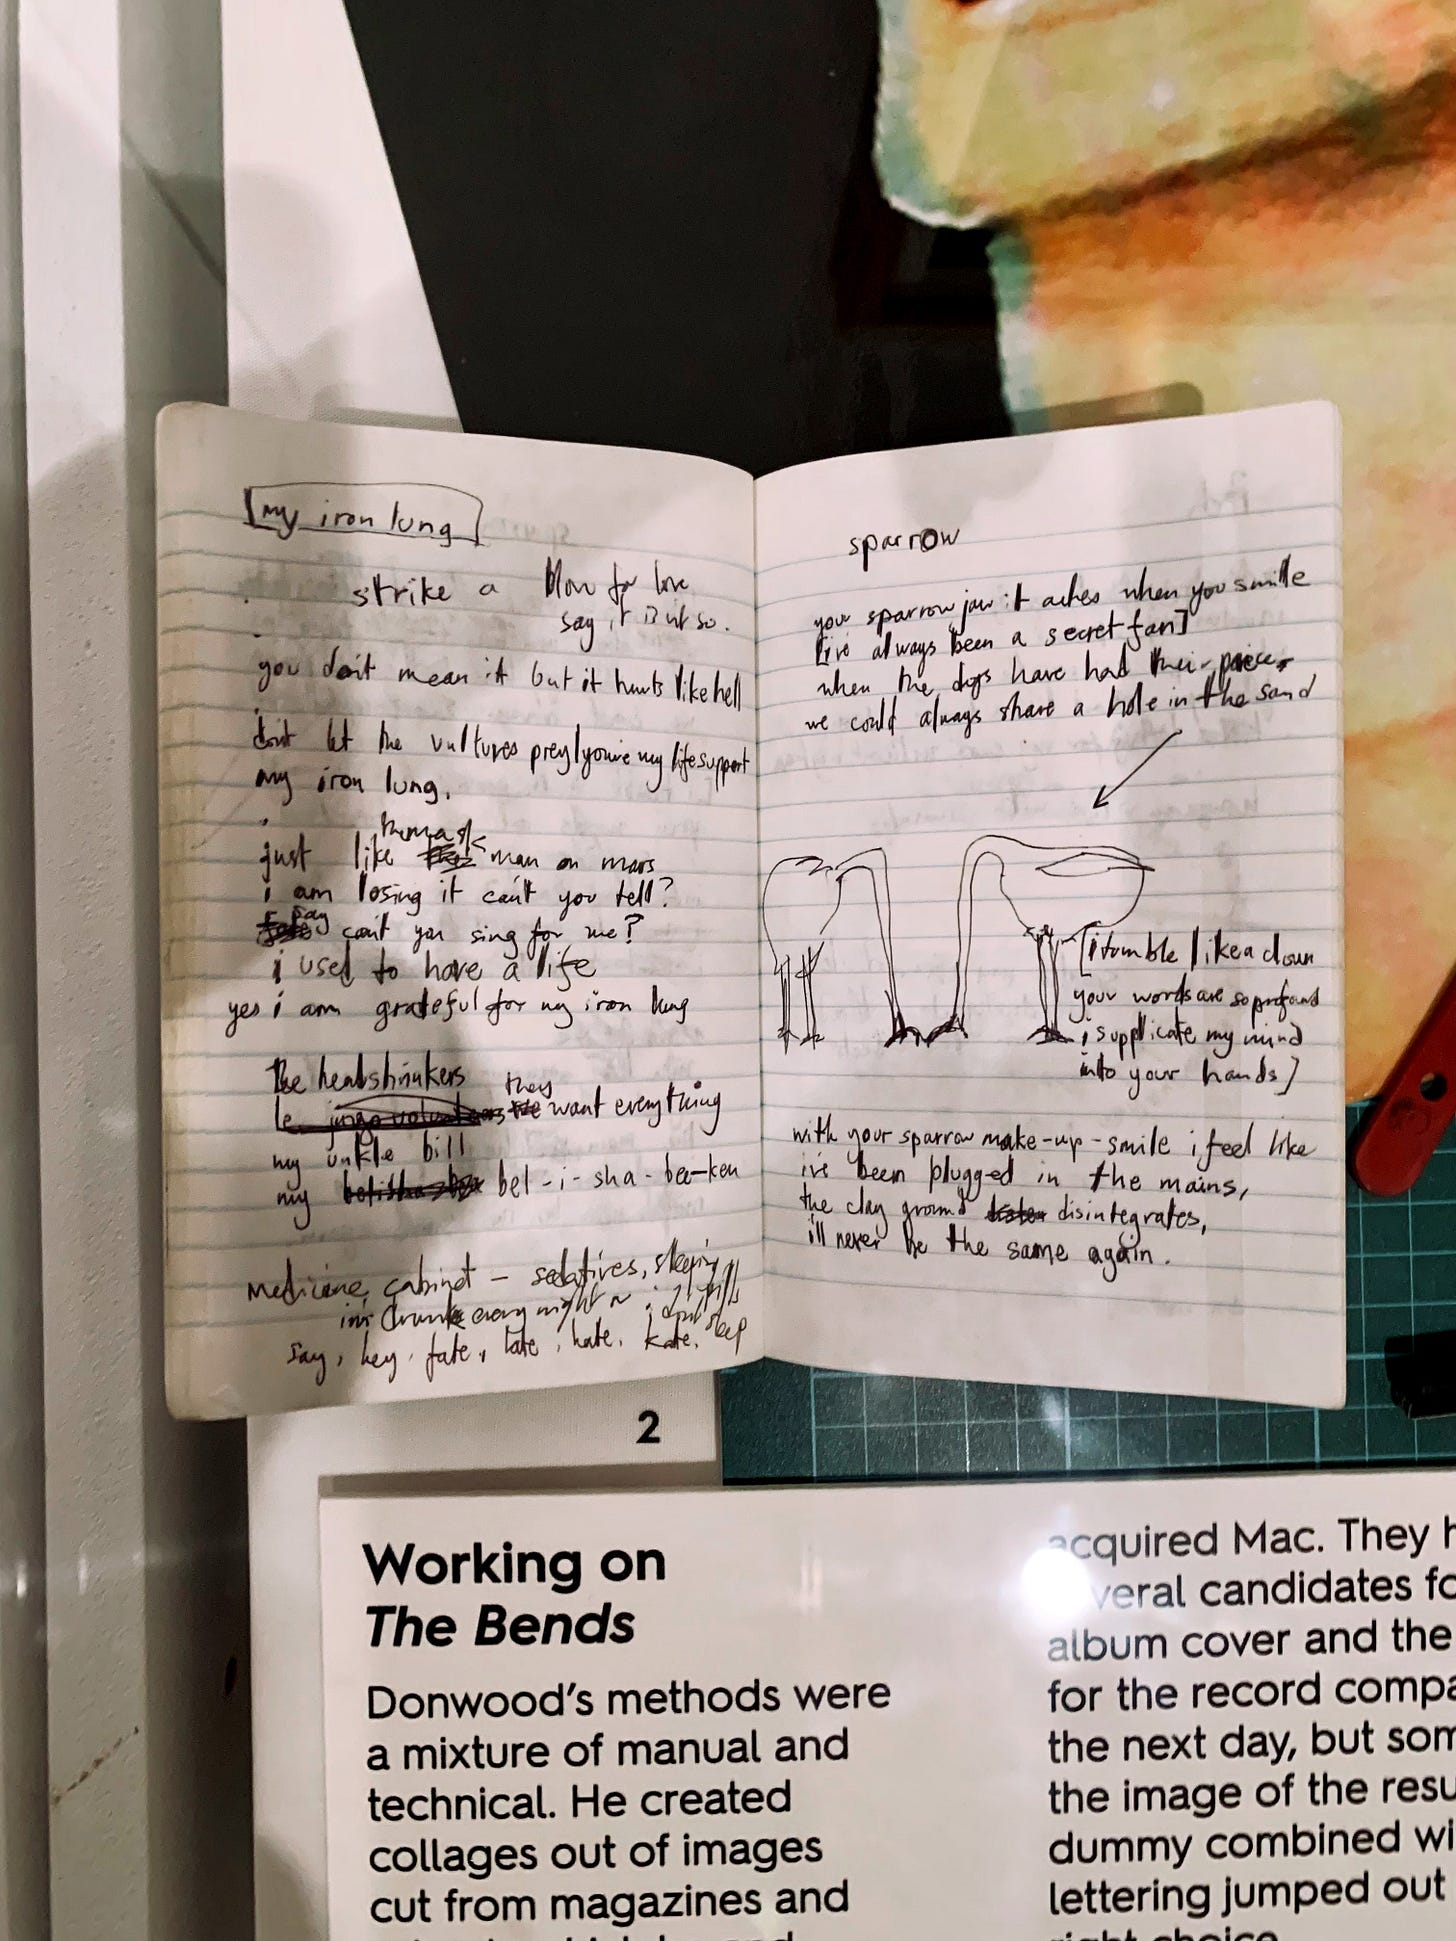 my iron lung
strike a blow for love
say it isnt so.
you dont mean it but it hurts like hell
dont let the vultures prey/you're my life support
my iron lung,
just like the mask man on mars
i am losing it can't you tell?
say can't you sing for me?
i used to have a life
yes i am grateful for my iron lung
the headshrinkers
le jingo volunteers they want everything
my unkle bill
my bel-i-sha-bea-ken
medicine cabinet - sedatives, sleeping pills
i'm drunk every night i don't sleep
say, hey, fate, late, hate, kate.
sparrow
your sparrow jaw it aches when you smile
[i've always been a secret fan]
when the dogs have had their
we could always share a hole in the sand
[i tumble like a clown
your words are so profound
i supplicate my mind
into your hands]
with your sparrow make-up-smile i feel like
i've been plugged in the mains,
the clay ground disintegrates,
i'll never be the same again.
2
Working on
The Bends
Donwood's methods were
a mixture of manual and
technical. He created
collages out of images
cut from magazines and
acquired Mac. They
candidates
album cover and the
for the record
the next day, but
the image of the
dummy combined
lettering jumped out
right choice